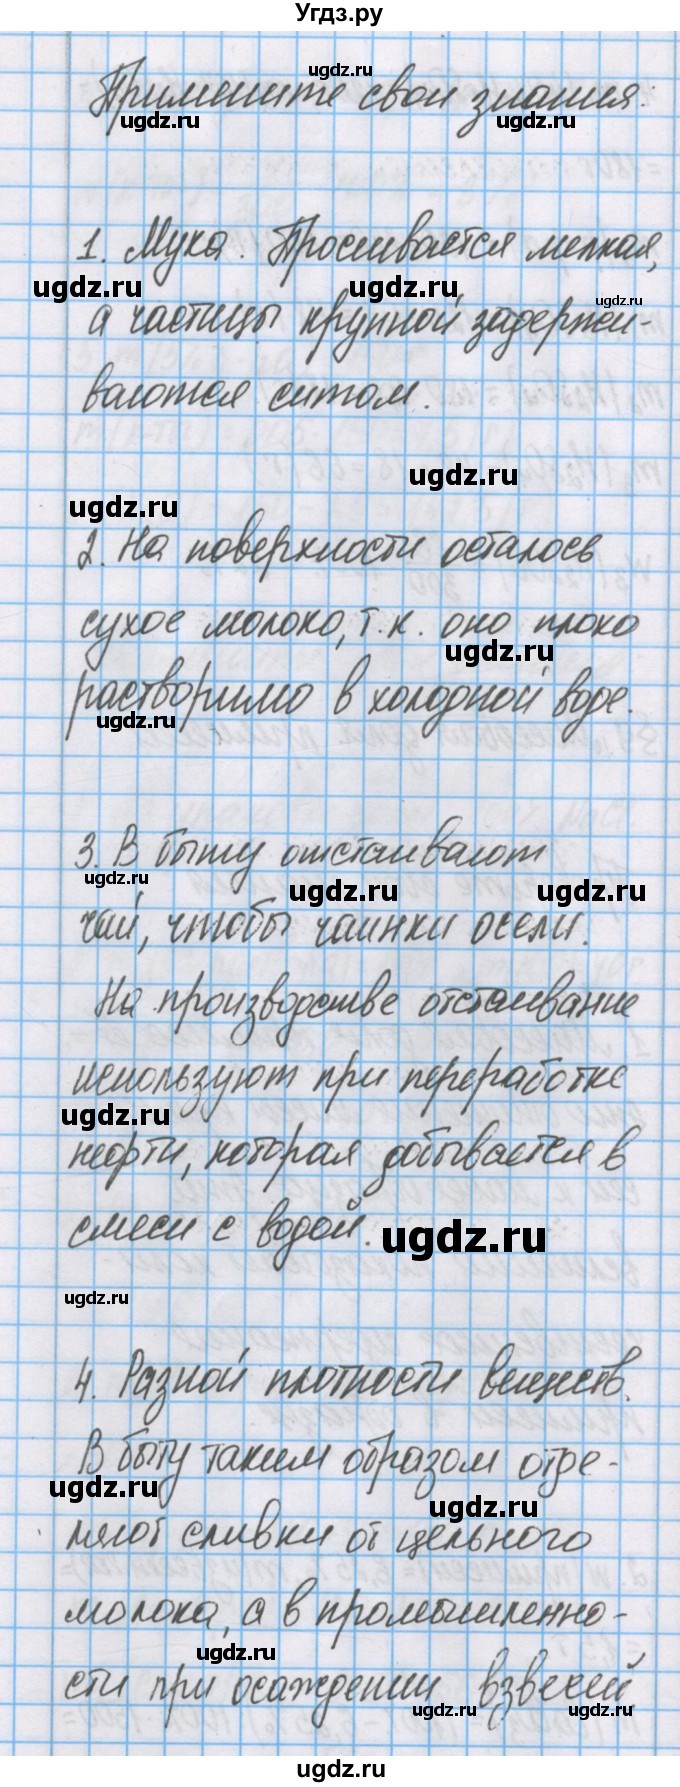 Угдз.ру
ugdz.ru
Примените свои знания:
ugdz.ru ugdz.ru
1. Мука. Просеивается мелкая,
ugdz.ru ugdz.ru ugdz.ru
а частицы крупной задержи-
ваются ситом.
ugdz.ru
ugdz.ru
2. На поверхности осталось
сухое молоко, т.к. оно плохо
ugdz.ru
растворимо в холодной воде.
ugdz.ru
3. В быту отстаивают
ugdz.ru ugdz.ru ugdz.ru
чай, чтобы чаинки осели.
На производстве отстаивание
используют при переработке
ugdz.ru
нефти, которая добывается в
смеси с водой.
ugdz.ru
ugdz.ru
4. Разной плотности веществ.
В быту таким образом отде-
ugdz.ru ugdz.ru
ляют сливки от цельного
молока, а в промышленно-
ugdz.ru
сти при осаждении взвесей
ugdz.ru ugdz.ru
ugdz.ru